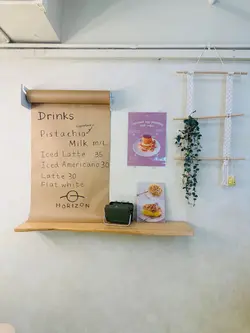 Drinks
Pistachio
Milk
Iced Latte 35
Iced Americano 30
Latte 30
Flat white
HORIZON